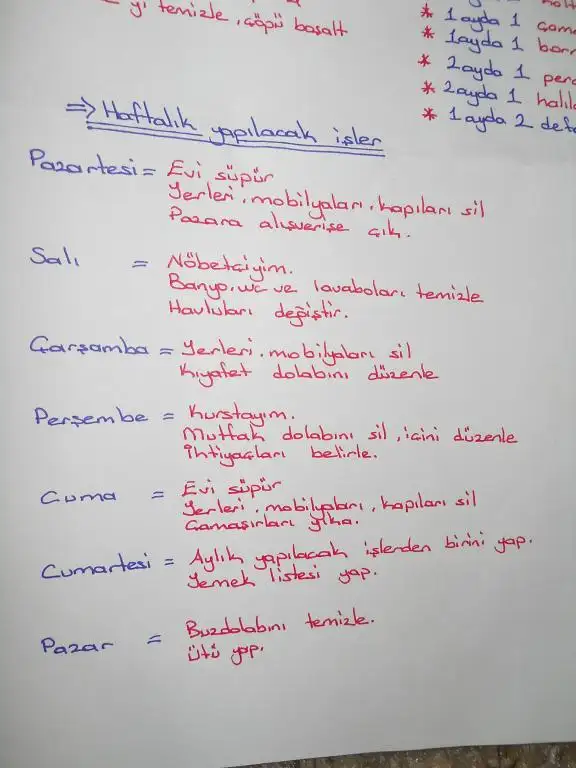 yı temizle, çöpü boşalt
* 1 ayda 1
* 1 ayda 1
* 2 ayda 1
* 2 ayda 1
* 1 ayda 2 defa
⇒ Haftalık yapılacak işler
Pazartesi = Evi süpür
Yerleri, mobilyaları, kapıları sil
Pazara alışverişe çık.
Salı = Nöbetçiyim.
Banyo, wc ve lavaboları temizle
Havluları değiştir.
Çarşamba = Yerleri, mobilyaları sil
Kıyafet dolabını düzenle
Perşembe = Kurstayım.
Mutfak dolabını sil, içini düzenle
İhtiyaçları belirle.
Cuma = Evi süpür
Yerleri, mobilyaları, kapıları sil
Çamaşırları yıka.
Cumartesi = Aylık yapılacak işlerden birini yap.
Yemek listesi yap.
Pazar = Buzdolabını temizle.
Ütü yap.